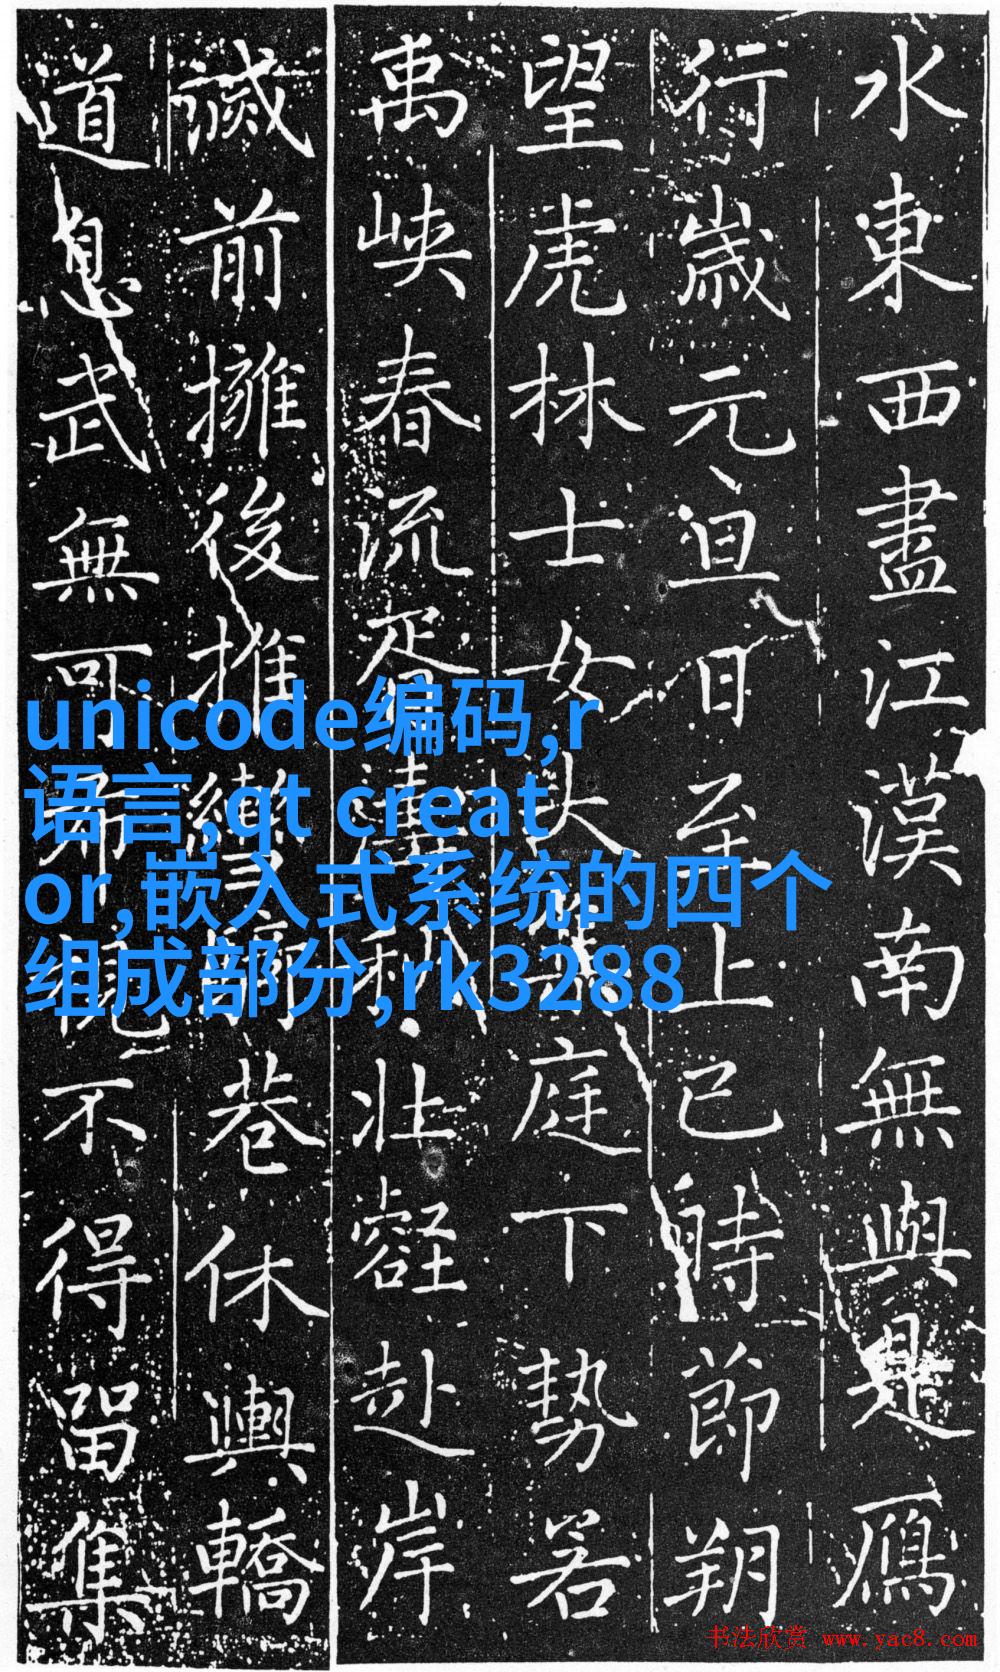 水東西盡江漢南無與是鴈
行歲元旦日至上巳時節朔
望虎林士女大庭下勢若
禹峽春流胥濤秋壮壑赴岸
滅前擁後推巷休輿轎
道息武無可不得留集
unicode编码,r
语言,qt creat
or,嵌入式系统的四个
组成部分,rk3288
书法欣赏 www.yac8.com